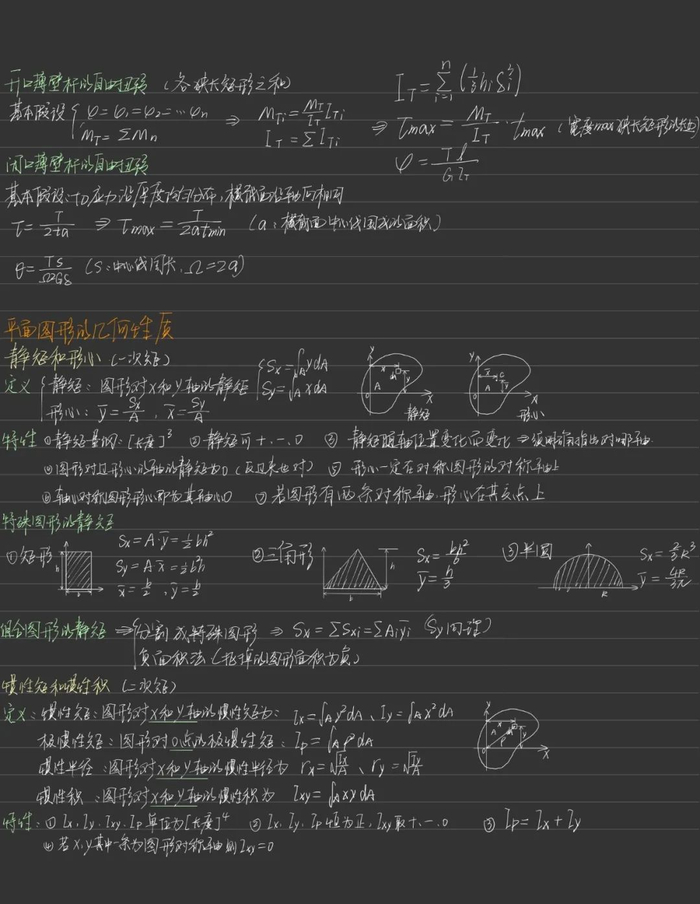 开口薄壁杆的自由扭转 (各狭长矩形之和) I_T = \sum_{i=1}^{n} (\frac{1}{3} h_i δ_i^3)
基本假设 { φ = φ_1 = φ_2 = … φ_n ⇒ M_{Ti} = \frac{M_T}{I_T} I_{Ti} ⇒ τ_{max} = \frac{M_T}{I_T} · t_{max} (宽度max狭长矩形的
M_T = ΣM_n I_T = ΣI_{Ti} φ = \frac{Tl}{GI_T}
闭口薄壁杆的自由扭转
基本假设: 应力沿厚度均匀分布, 横截面沿轴向相同
τ = \frac{T}{2ta} ⇒ τ_{max} = \frac{T}{2at_{min}} (a: 横截面中心线围成的面积)
θ = \frac{TS}{Ω^2Gδ} (S: 中心线周长, Ω = 2a)
平面图形的几何性质
静矩和形心 (一次矩)
定义 { 静矩: 图形对x和y轴的静矩 { S_x = ∫_A y dA
S_y = ∫_A x dA
形心: \bar{y} = \frac{S_x}{A}, \bar{x} = \frac{S_y}{A}
y A x O 静矩
y A C x O 形心
特性 ①静矩量纲: [长度]^3 ②静矩可+、-、0 ③静矩随轴位置变化而变化 ⇒ 须明确指出对哪轴
④图形对过形心的轴的静矩为0 (反过来也对) ⑤形心一定在对称图形的对称轴上
⑥轴心对称图形形心即为其轴心 ⑦若图形有两条对称轴, 形心在其交点上
特殊图形的静矩
①矩形 h b S_x = A·\bar{y} = \frac{1}{2}bh^2
S_y = A·\bar{x} = \frac{1}{2}b^2h
\bar{x} = \frac{b}{2}, \bar{y} = \frac{h}{2}
②三角形 h b S_x = \frac{bh^2}{6}
\bar{y} = \frac{h}{3}
③半圆 R S_x = \frac{2}{3}R^3
\bar{y} = \frac{4R}{3π}
组合图形的静矩 ⇒ { 分割成特殊图形 ⇒ S_x = ΣS_{xi} = ΣA_i\bar{y}_i (S_y同理)
负面积法 (挖掉的图形面积为负)
惯性矩和惯性积 (二次矩)
定义: 惯性矩: 图形对x和y轴的惯性矩为: I_x = ∫_A y^2 dA、I_y = ∫_A x^2 dA
极惯性矩: 图形对O点的极惯性矩: I_p = ∫_A ρ^2 dA
惯性半径: 图形对x和y轴的惯性半径为 r_x = \sqrt{\frac{I_x}{A}}、r_y = \sqrt{\frac{I_y}{A}}
惯性积: 图形对x和y轴的惯性积为 I_{xy} = ∫_A xy dA
y A ρ x O
特性: ①I_x、I_y、I_{xy}、I_p单位为[长度]^4 ②I_x、I_y、I_p恒为正, I_{xy}取+、-、0 ③I_p = I_x + I_y
④若x,y其中一条为图形对称轴则I_{xy} = 0